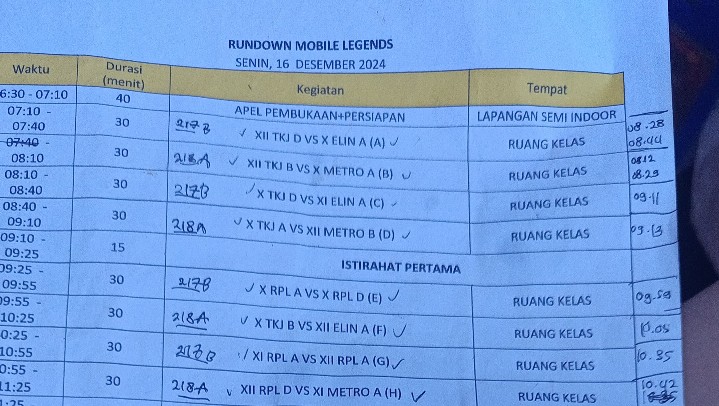 RUNDOWN MOBILE LEGENDS
SENIN, 16 DESEMBER 2024
Waktu Durasi (menit) Kegiatan Tempat
6:30 - 07:10 40 APEL PEMBUKAAN+PERSIAPAN LAPANGAN SEMI INDOOR
07:10 - 07:40 30 217B ✓ XII TKJ D VS X ELIN A (A) ✓ RUANG KELAS 08.28 08.44
07:40 - 08:10 30 218A ✓ XII TKJ B VS X METRO A (B) ✓ RUANG KELAS 0812 08.29
08:10 - 08:40 30 217B ✓ X TKJ D VS XI ELIN A (C) ✓ RUANG KELAS 09.11
08:40 - 09:10 30 218A ✓ X TKJ A VS XII METRO B (D) ✓ RUANG KELAS 09.13
09:10 - 09:25 15 ISTIRAHAT PERTAMA
09:25 - 09:55 30 217B ✓ X RPL A VS X RPL D (E) ✓ RUANG KELAS 09.59
09:55 - 10:25 30 218A ✓ X TKJ B VS XII ELIN A (F) ✓ RUANG KELAS 10.05
0:25 - 10:55 30 217B ✓ XI RPL A VS XII RPL A (G) ✓ RUANG KELAS 10.35
0:55 - 11:25 30 218A ✓ XII RPL D VS XI METRO A (H) ✓ RUANG KELAS 10.42
1:25